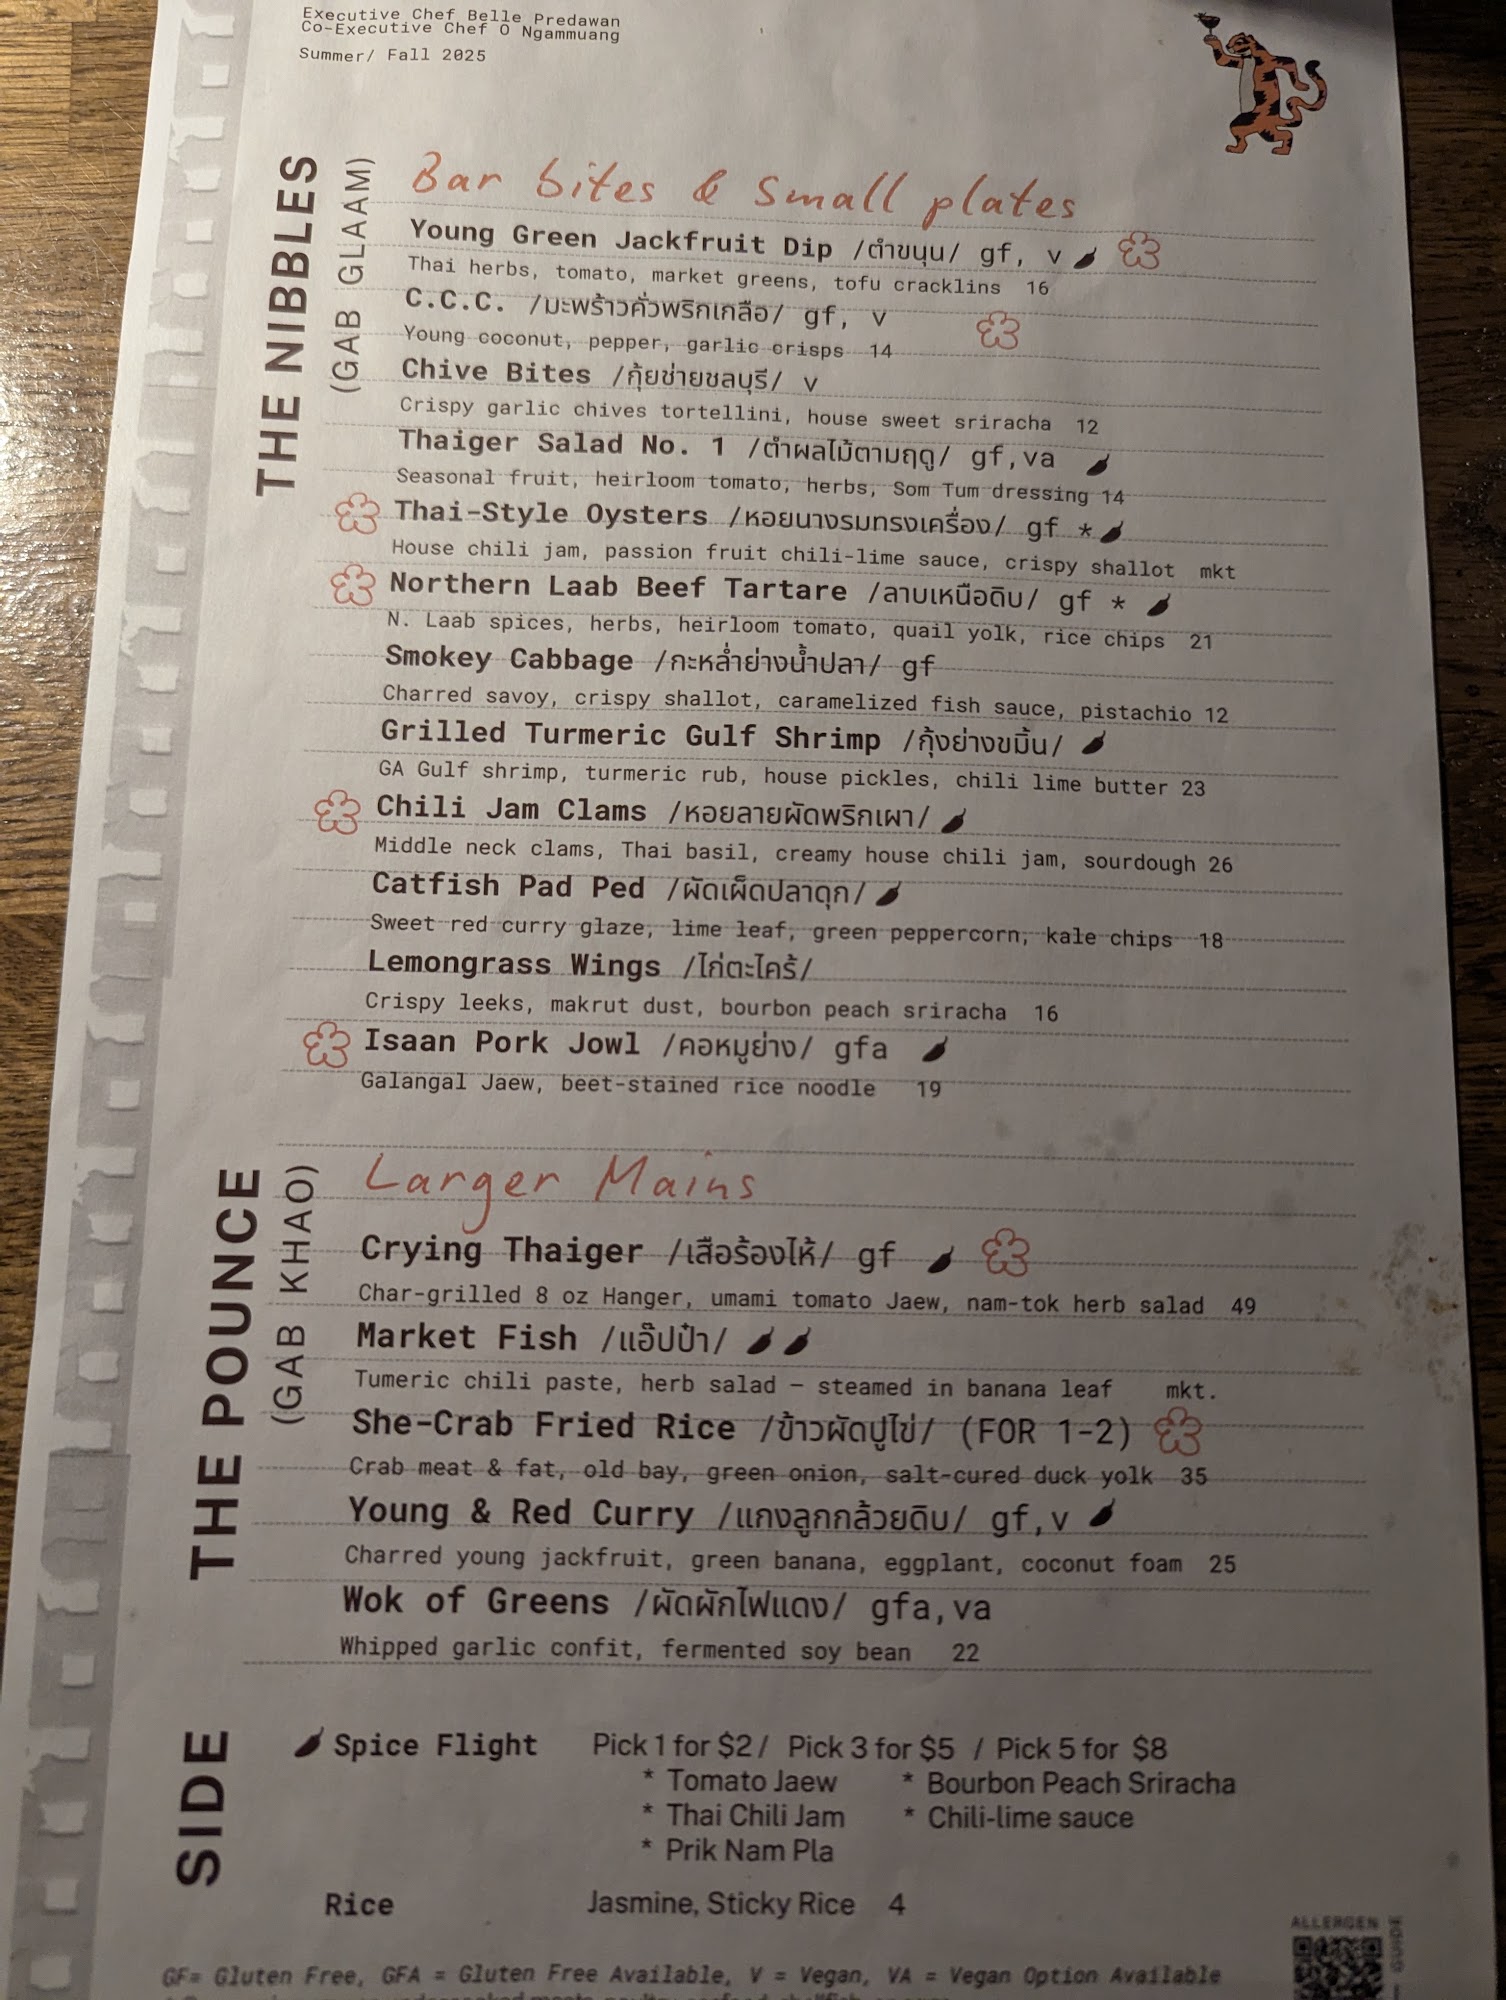 Executive Chef Belle Predawan
Co-Executive Chef O Ngammuang
Summer/ Fall 2025
THE NIBBLES
(GAB GLAAM)
Bar bites & Small plates
Young Green Jackfruit Dip /ตำขนุน/ gf, v
Thai herbs, tomato, market greens, tofu cracklins 16
C.C.C. /มะพร้าวคั่วพริกเกลือ/ gf, v
Young coconut, pepper, garlic crisps 14
Chive Bites /กุ้ยช่ายชลบุรี/ v
Crispy garlic chives tortellini, house sweet sriracha 12
Thaiger Salad No. 1 /ตำผลไม้ตามฤดู/ gf,va
Seasonal fruit, heirloom tomato, herbs, Som Tum dressing 14
Thai-Style Oysters /หอยนางรมทรงเครื่อง/ gf *
House chili jam, passion fruit chili-lime sauce, crispy shallot mkt
Northern Laab Beef Tartare /ลาบเหนือดิบ/ gf *
N. Laab spices, herbs, heirloom tomato, quail yolk, rice chips 21
Smokey Cabbage /กะหล่ำย่างน้ำปลา/ gf
Charred savoy, crispy shallot, caramelized fish sauce, pistachio 12
Grilled Turmeric Gulf Shrimp /กุ้งย่างขมิ้น/
GA Gulf shrimp, turmeric rub, house pickles, chili lime butter 23
Chili Jam Clams /หอยลายผัดพริกเผา/
Middle neck clams, Thai basil, creamy house chili jam, sourdough 26
Catfish Pad Ped /ผัดเผ็ดปลาดุก/
Sweet red curry glaze, lime leaf, green peppercorn, kale chips 18
Lemongrass Wings /ไก่ตะไคร้/
Crispy leeks, makrut dust, bourbon peach sriracha 16
Isaan Pork Jowl /คอหมูย่าง/ gfa
Galangal Jaew, beet-stained rice noodle 19
THE POUNCE
(GAB KHAO)
Larger Mains
Crying Thaiger /เสือร้องไห้/ gf
Char-grilled 8 oz Hanger, umami tomato Jaew, nam-tok herb salad 49
Market Fish /แอ๊ปป๋า/
Tumeric chili paste, herb salad – steamed in banana leaf mkt.
She-Crab Fried Rice /ข้าวผัดปูไข่/ (FOR 1-2)
Crab meat & fat, old bay, green onion, salt-cured duck yolk 35
Young & Red Curry /แกงลูกกล้วยดิบ/ gf,v
Charred young jackfruit, green banana, eggplant, coconut foam 25
Wok of Greens /ผัดผักไฟแดง/ gfa,va
Whipped garlic confit, fermented soy bean 22
SIDE
Spice Flight Pick 1 for $2 / Pick 3 for $5 / Pick 5 for $8
* Tomato Jaew * Bourbon Peach Sriracha
* Thai Chili Jam * Chili-lime sauce
* Prik Nam Pla
Rice Jasmine, Sticky Rice 4
ALLERGEN
GUIDE
GF= Gluten Free, GFA = Gluten Free Available, V = Vegan, VA = Vegan Option Available